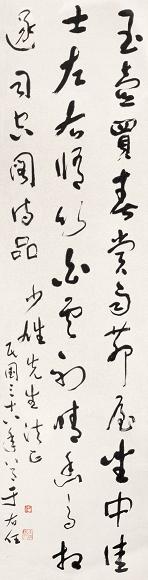 玉壺買春賞雨茆屋坐中佳
士左右脩竹白雲初晴幽鳥相
逐司空圖詩品
少姓先生法正
民國三十八年
于右任